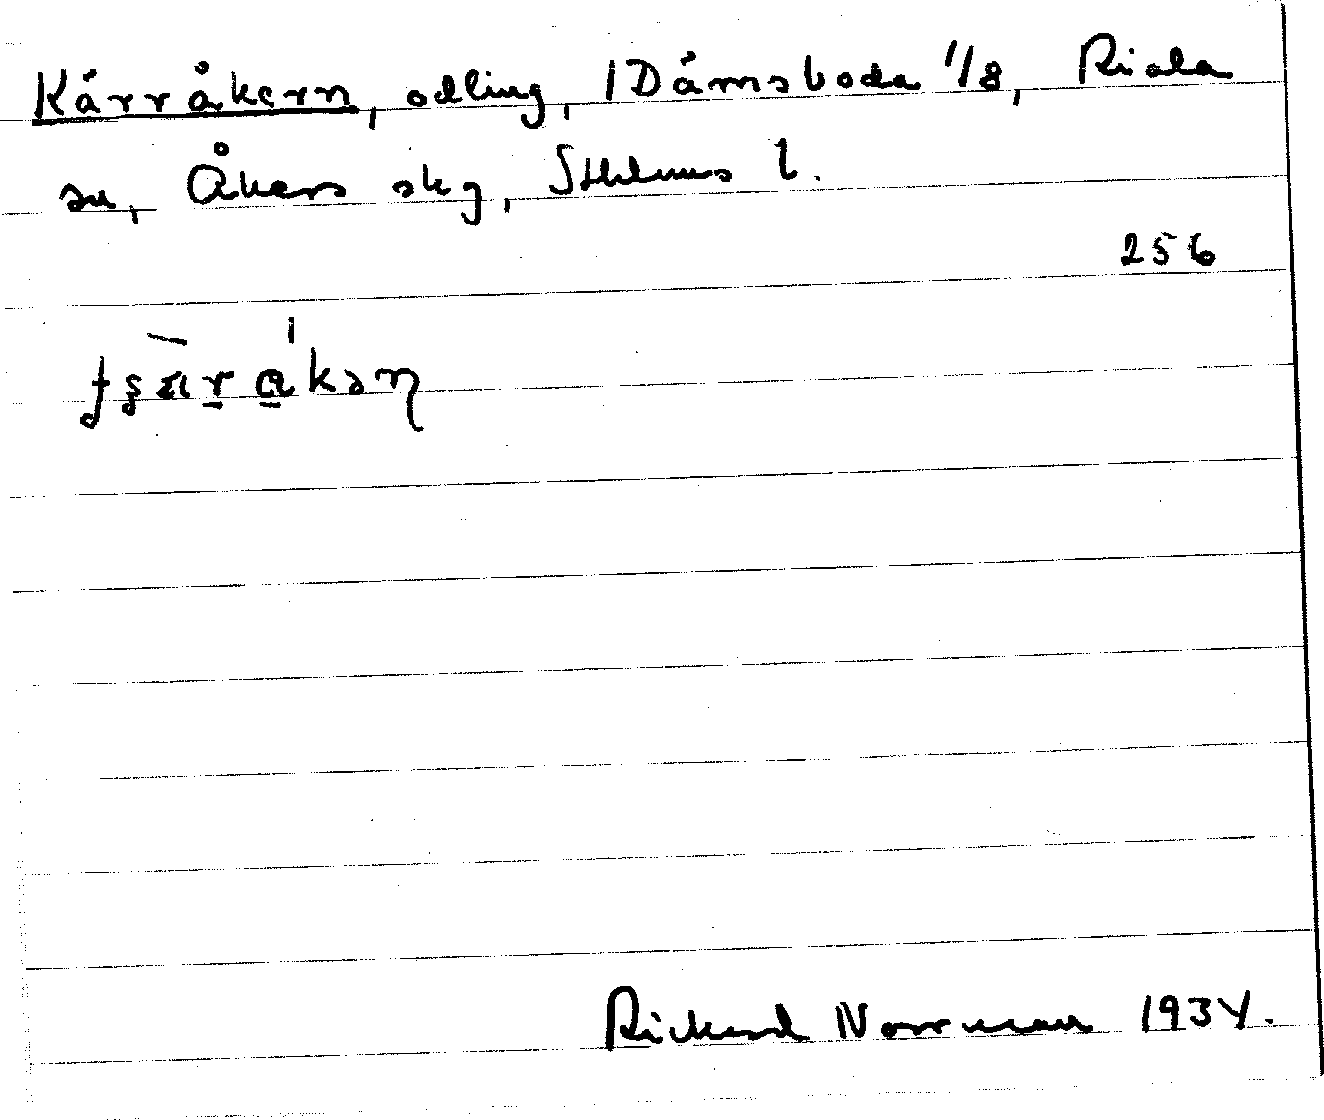 Kärråkern, odling, 1 Dämsboda 1/8, Riala
sn, Åkers skg, Sthlms l.
256
Rickard Norrman 1934.